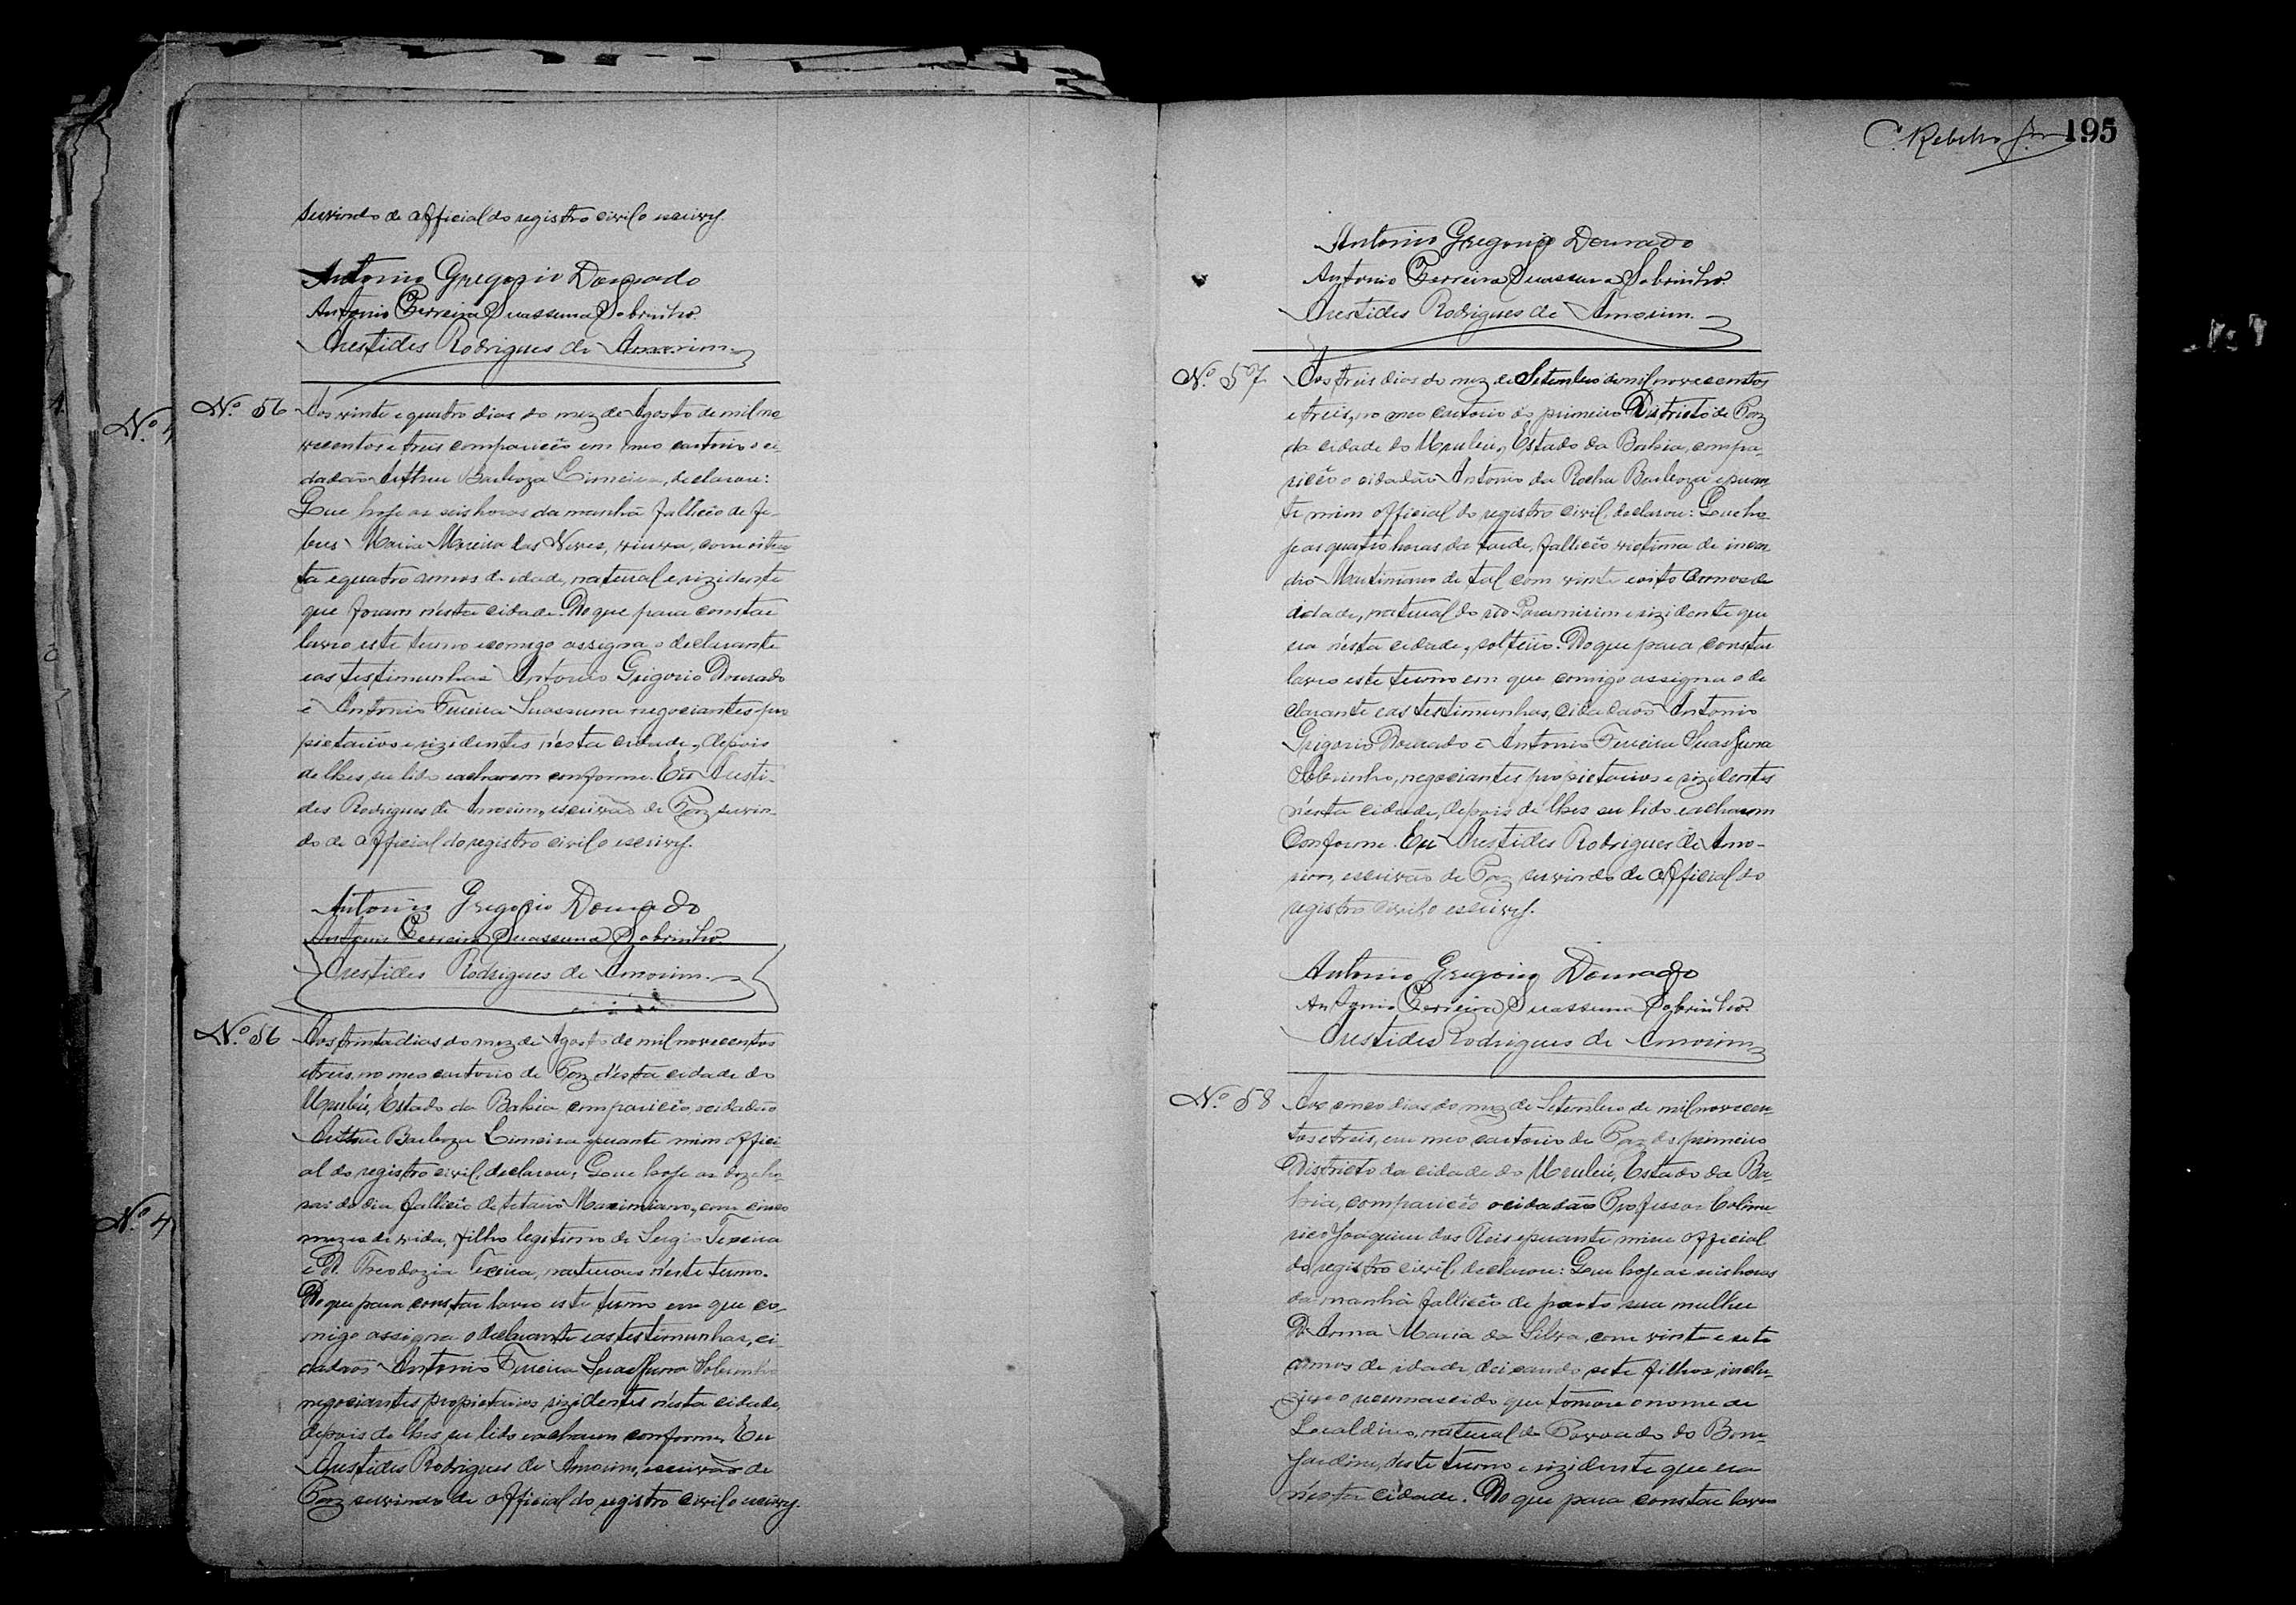 servindo de official do registro civil o escrivy.
Antonio Gregorio Dourado
Antonio Ferreira Suassuna Sobrinho.
Arestides Rodrigues de Amorim.
Nº 56
Aos vinte e quatro dias do mez de Agosto de mil no
vecentos e treis compareceo em meo cartorio o ci-
dadão Arthur Barboza Limeira, declarou:
Que hoje as seis horas da manhã falleceo de fe-
bres Maria Moreira das Neves, viuva, com oiten
ta e quatro annos de idade, natural e rizidente
que foram n'esta cidade. Do que para constar
lavro este termo e comigo assigna o declarante
e as testimunhas Antonio Grigorio Dourado
e Antonio Ferreira Suassuna negociantes pro
pietarios e rizidentes n'esta cidade, depois
de lhes ser lido e acharem conforme. Eu Aresti-
des Rodrigues de Amorim, escrivão de Paz servin-
do de official do registro civil o escrivy.
Antonio Gregorio Dourado
Antonio Ferreira Suassuna Sobrinho.
Arestides Rodrigues de Amorim.
Nº 56
Aos trinta dias do mez de Agosto de mil novecentos
e treis, no meo cartorio de Paz d'esta cidade do
Urubú, Estado da Bahia compareceo o cidadão
Arthur Barboza Limeira e perante mim offici
al do registro civil, declarou: Que hoje as doze ho-
ras do dia falleceo de tetano Maximiano, com cinco
mezes de vida, filho legitimo de Sergio Texeira
e D. Theodozia Texeira, naturaes d'este termo.
Do que para constar lavro este termo em que co-
migo assigna o declarante e as testimunhas, ci-
dadãos Antonio Ferreira Suassuna Sobrinho
negociantes propietarios rizidentes n'esta cidade,
depois de lhes ser lido e acharem conforme. Eu
Arestides Rodrigues de Amorim, escrivão de
Paz servindo de official do registro civil o escrivy.
C. Rebello Jor. 195
Antonio Gregorio Dourado
Antonio Ferreira Suassuna Sobrinho.
Arestides Rodrigues de Amorim.
Nº 57
Aos treis dias do mez de Setembro de mil novecentos
e treis, no meo cartorio do primeiro Districto de Paz
da cidade do Urubú, Estado da Bahia, compa-
receo o cidadão Antonio da Rocha Barboza e peran
te mim official do registro civil, declarou: Que ho
je as quatro horas da tarde, falleceo victima de incen
dio Martiniano de tal com vinte e oito annos de
idade, natural do rio Paramirim e rizidente que
era n'esta cidade, solteiro. Do que para constar
lavro este termo em que comigo assigna o de
clarante e as testimunhas, cidadãos Antonio
Grigorio Dourado e Antonio Ferreira Suassuna
Sobrinho, negociantes propietarios e rizidentes
n'esta cidade, depois de lhes ser lido e acharem
conforme. Eu Arestides Rodrigues de Amo-
rim, escrivão de Paz servindo de official do
registro civil, o escrivy.
Antonio Gregorio Dourado
Antonio Ferreira Suassuna Sobrinho.
Arestides Rodrigues de Amorim
Nº 58
Aos cinco dias do mez de Setembro de mil novecen
tos e treis, em meo cartorio de Paz do primeiro
Districto da cidade do Urubú, Estado da Ba-
hia, compareceo o cidadão Professor
Joaquim dos Reis e perante mim official
do registro civil, declarou: Que hoje as seis horas
da manhã falleceo de parto sua mulher
D. Anna Maria da Silva, com vinte e sete
annos de idade, deixando sete filhos, inclu-
sive o recemnascido que tomou o nome de
natural do Povoado do Bom
Jardim, d'este termo e rizidente que era
n'esta cidade. Do que para constar lavro
Nº 4